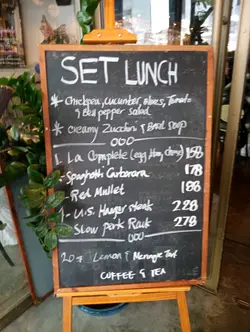 SET LUNCH
* Chickpea, cucumber, olives, Tomato
& Bell pepper salad
* Creamy Zucchini & Basil soup
000
1. La Complete (egg, Ham, cheese) 158
- Spaghetti Carbonara 178
- Red Mullet 188
- U.S. Hanger steak 228
Slow pork Rack 278
000
Lemon & Meringue Tart
COFFEE & TEA